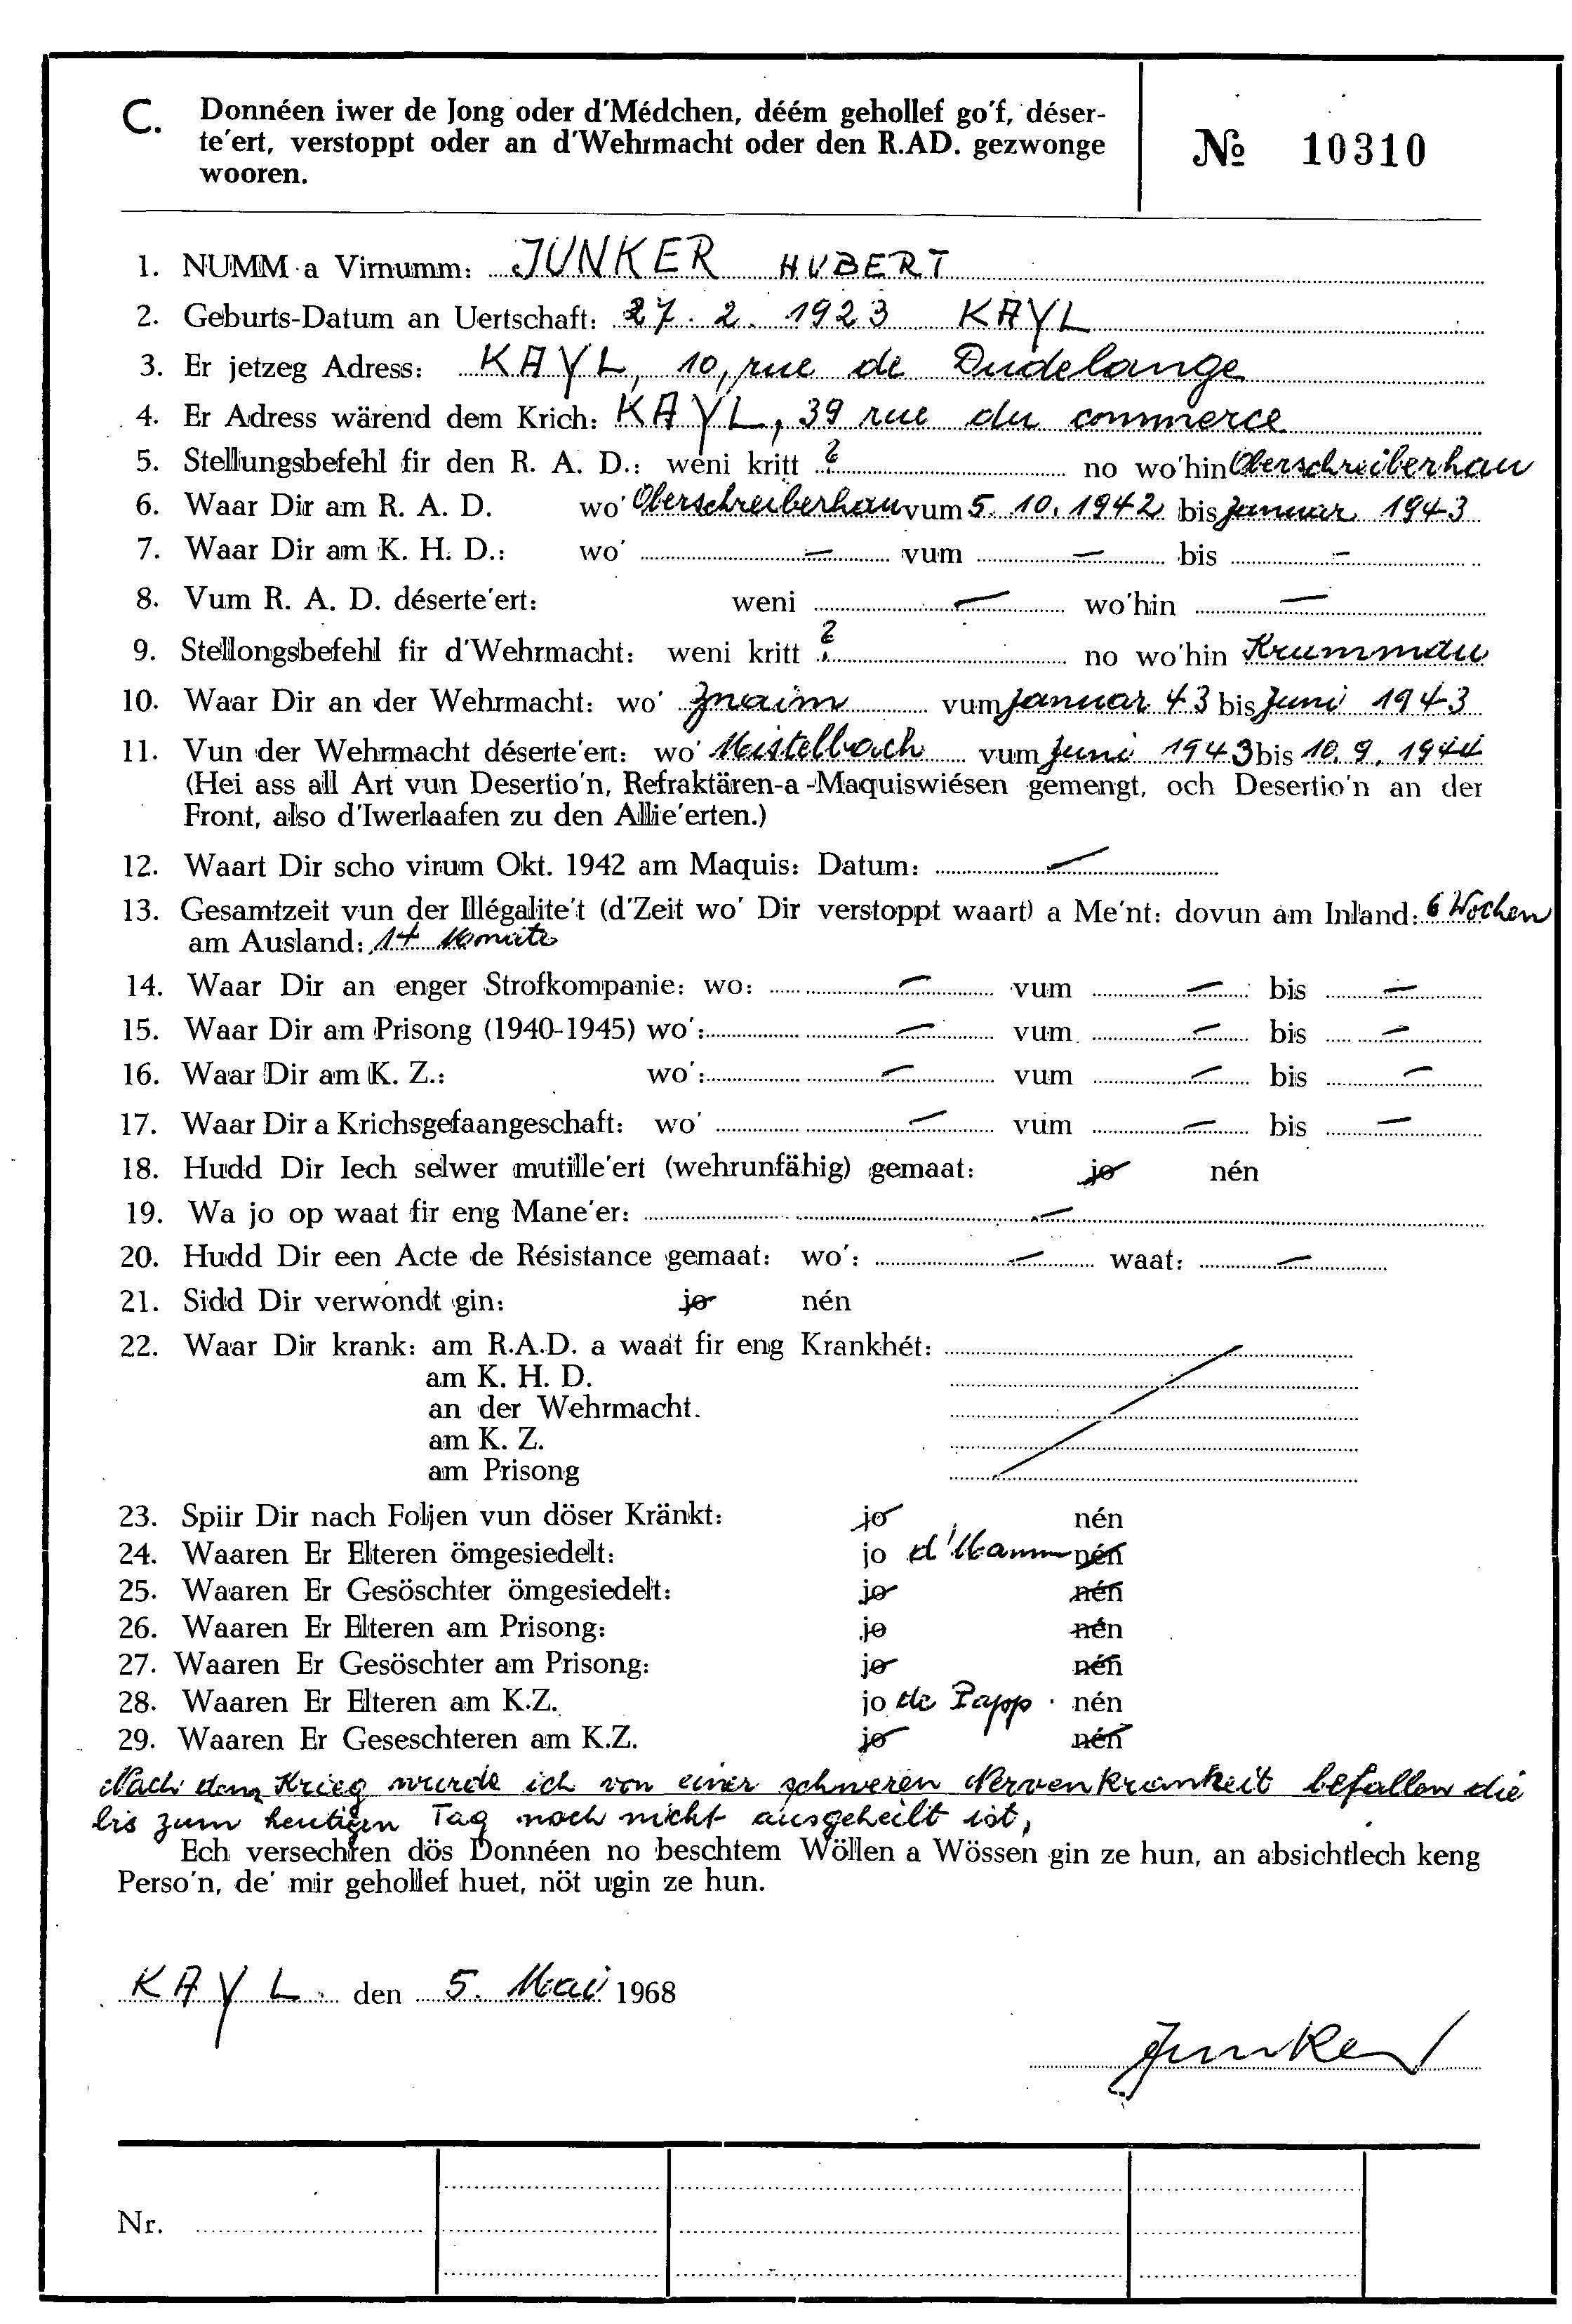 C. Donnéen iwer de Jong oder d'Médchen, déém gehollef go'f, déser-
te'ert, verstoppt oder an d'Wehrmacht oder den R.AD. gezwonge
wooren.
№ 10310
1. NUMM a Virnumm: JUNKER HUBERT
2. Geburts-Datum an Uertschaft: 27. 2. 1923 KAYL
3. Er jetzeg Adress: KAYL, 10, rue de Dudelange
4. Er Adress wärend dem Krich: KAYL, 39 rue du commerce
5. Stellungsbefehl fir den R. A. D.: wéni kritt ? no wo'hin Oberschreiberhau
6. Waar Dir am R. A. D. wo' Oberschreiberhau vum 5. 10. 1942 bis Januar 1943
7. Waar Dir am K. H. D.: wo' – vum – bis –
8. Vum R. A. D. déserte'ert: weni – wo'hin –
9. Stellongsbefehl fir d'Wehrmacht: weni kritt ? no wo'hin Krummau
10. Waar Dir an der Wehrmacht: wo' Znaim vum Januar 43 bis Juni 1943
11. Vun der Wehrmacht déserte'ert: wo' Mistelbach vum Juni 1943 bis 10. 9. 1944
(Hei ass all Art vun Desertio'n, Refraktären-a-Maquiswiésen gemengt, och Desertio'n an der
Front, also d'Iwerlaafen zu den Allie'erten.)
12. Waart Dir scho virum Okt. 1942 am Maquis: Datum: –
13. Gesamtzeit vun der Illégalite't (d'Zeit wo' Dir verstoppt waart) a Me'nt: dovun am Inland: 6 Wochen
am Ausland: 14 Monate
14. Waar Dir an enger Strofkompanie: wo: – vum – bis –
15. Waar Dir am Prisong (1940-1945) wo': – vum – bis –
16. Waar Dir am K. Z.: wo': – vum – bis –
17. Waar Dir a Krichsgefaangeschaft: wo' – vum – bis –
18. Hudd Dir Iech selwer mutille'ert (wehrunfähig) gemaat: jo nén
19. Wa jo op waat fir eng Mane'er: –
20. Hudd Dir een Acte de Résistance gemaat: wo': – waat: –
21. Sidd Dir verwondt gin: jo nén
22. Waar Dir krank: am R.A.D. a waat fir eng Krankhét:
am K. H. D.
an der Wehrmacht.
am K. Z.
am Prisong
23. Spiir Dir nach Foljen vun döser Kränkt: jo nén
24. Waaren Er Elteren ömgesiedelt: jo d'Mamm nén
25. Waaren Er Gesöschter ömgesiedelt: jo nén
26. Waaren Er Elteren am Prisong: jo nén
27. Waaren Er Gesöschter am Prisong: jo nén
28. Waaren Er Elteren am K.Z. jo de Papp nén
29. Waaren Er Geseschteren am K.Z. jo nén
Nach dem Krieg wurde ich von einer schweren Nervenkrankeit befallen die
bis zum heutigen Tag noch nicht ausgeheilt ist,
Ech versechren dös Donnéen no beschtem Wöllen a Wössen gin ze hun, an absichtlech keng
Perso'n, de' mir gehollef huet, nöt ugin ze hun.
KAYL den 5. Mai 1968
Junker
Nr.